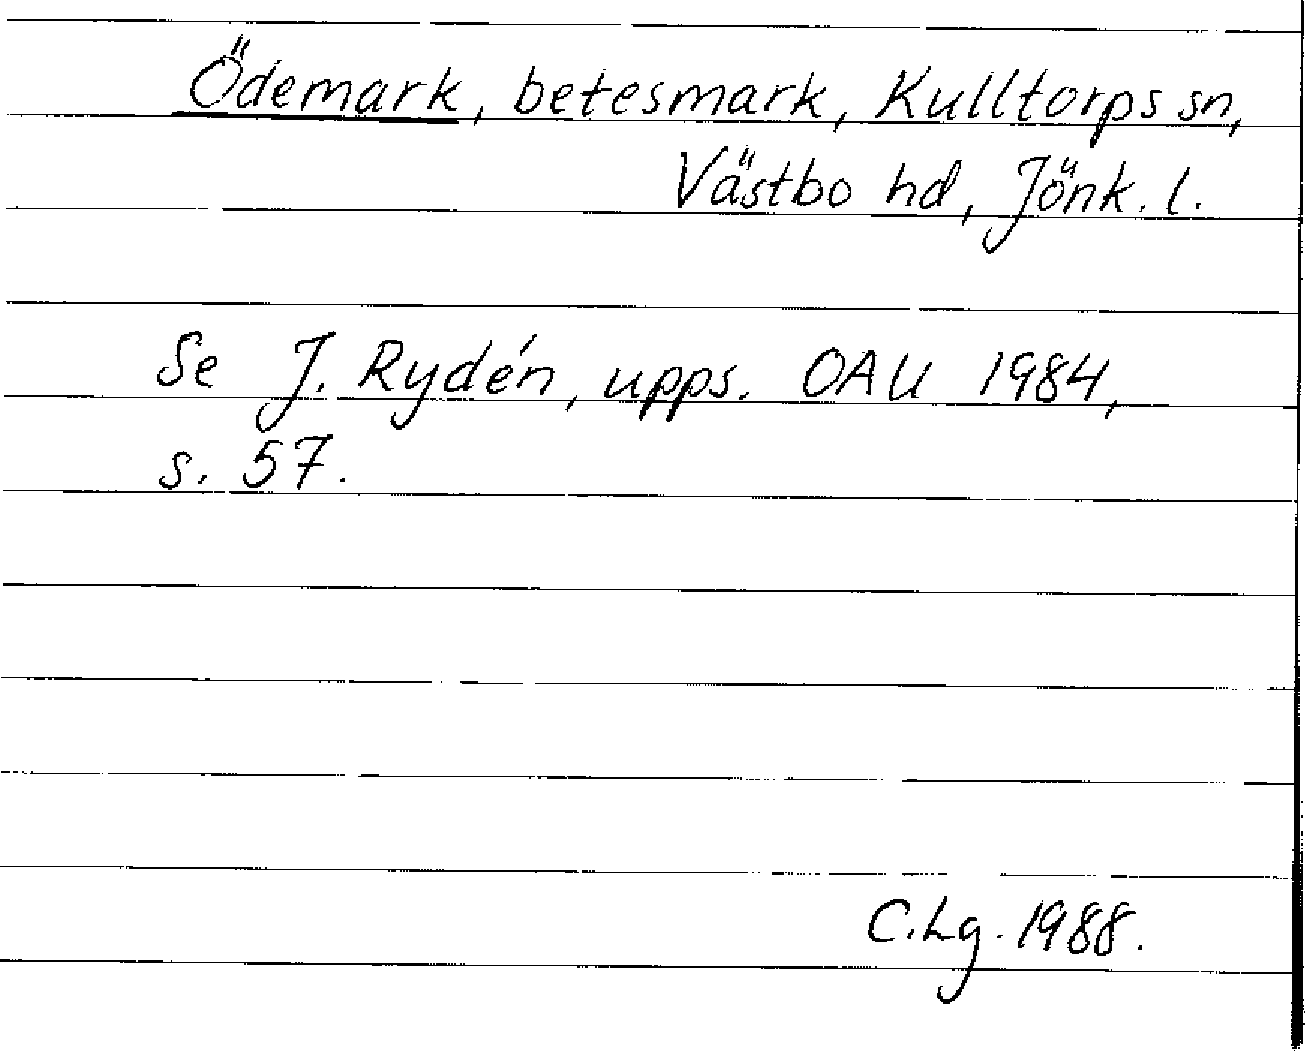 Ödemark, betesmark, Kulltorps sn,
Västbo hd, Jönk. l.
Se J. Rydén, upps. OAU 1984,
s. 57.
C.Lg. 1988.